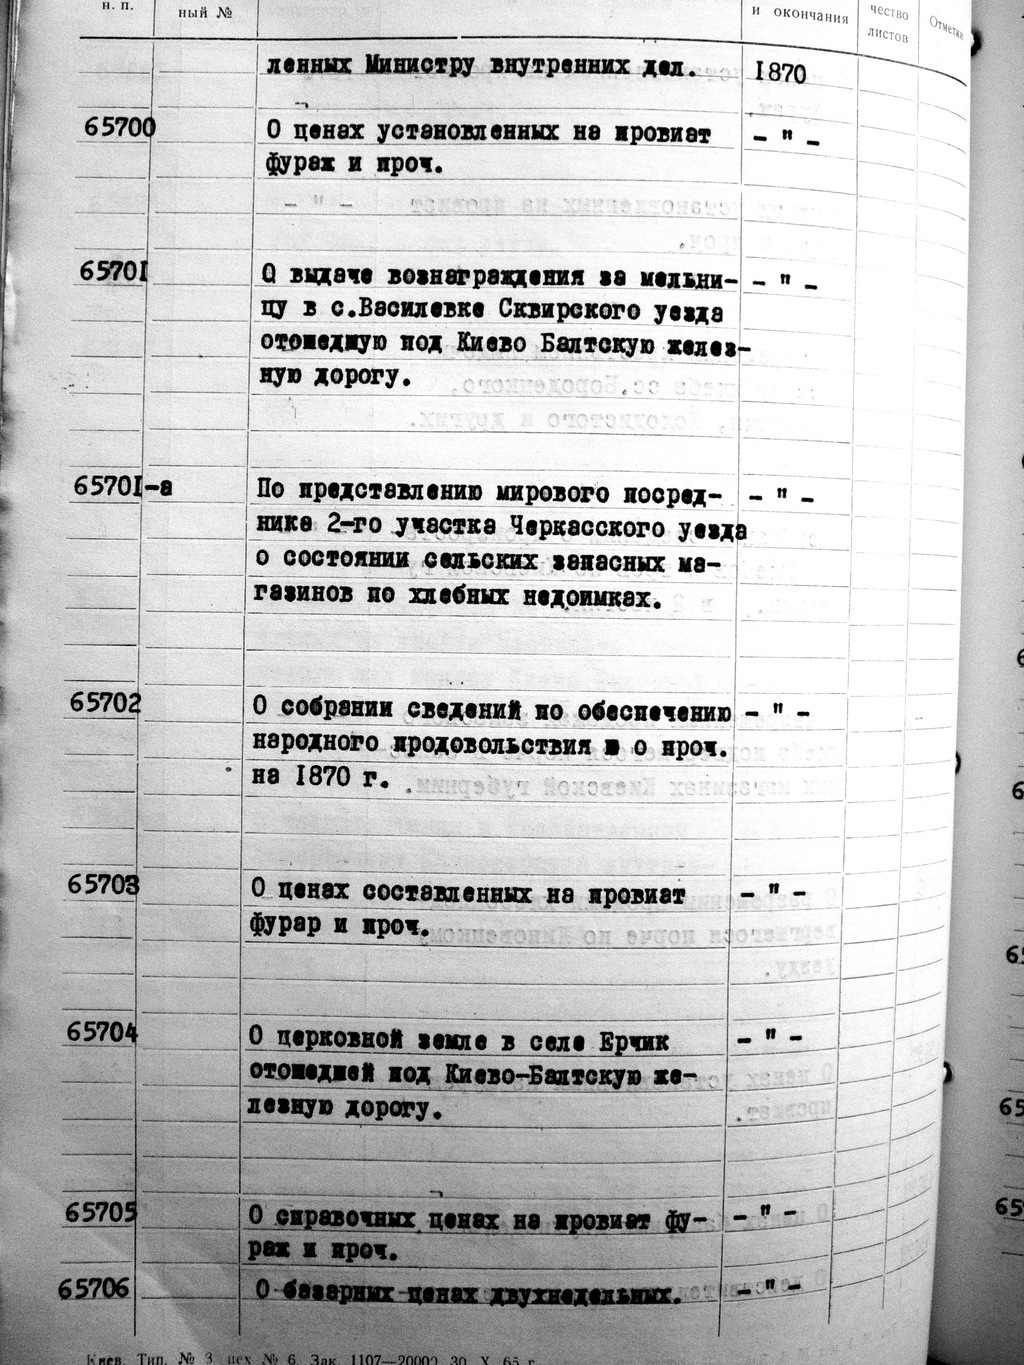 н. п.
ный №
и окончания
чество
листов
Отметки
ленных Министру внутренних дел. 1870
65700 О ценах установленных на провиат - " -
фураж и проч.
65701 О выдаче вознаграждения за мельни- - " -
цу в с.Василевке Сквирского уезда
отошедшую под Киево Балтскую желез-
ную дорогу.
65701-а По представлению мирового посред- - " -
ника 2-го участка Черкасского уезда
о состоянии сельских запасных ма-
газинов по хлебных недоимках.
65702 О собрании сведений по обеспечению - " -
народного продовольствия и о проч.
на 1870 г.
65703 О ценах составленных на провиат - " -
фурар и проч.
65704 О церковной земле в селе Ерчик - " -
отошедшей под Киево-Балтскую же-
лезную дорогу.
65705 О справочных ценах на провиат фу- - " -
раж и проч.
65706 О базарных ценах двухнедельных. - " -
Киев. Тип. № 3 цех № 6. Зак. 1107—20000 30. X. 65 г.